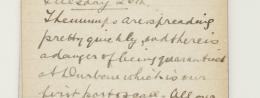 Tuesday 26th.
The mumps are spreading
pretty quickly, and there is
a danger of being quarantined
at Durban which is our
first port of call. All our